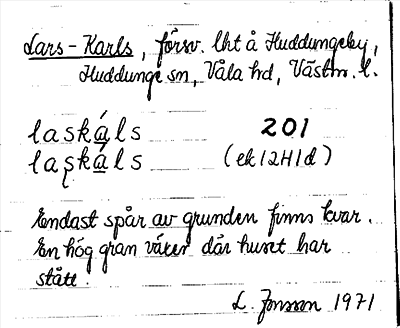 Lars-Karls, försv. lht å Huddungeby,
Huddunge sn, Våla hd, Västm. l.
laskáls 201
laʂkáls (ek 12H1d)
Endast spår av grunden finns kvar.
En hög gran växer där huset har
stått.
L. Jonsson 1971